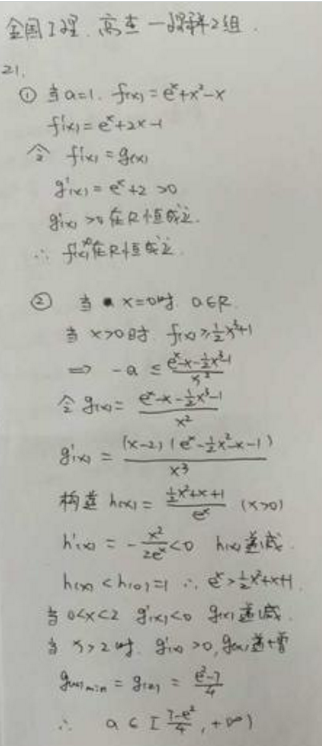 全国I理.高志一课群2组.
21.
① 当a=1. f(x)=eˣ+x²-x
f'(x)=eˣ+2x-1
令 f'(x)=g(x)
g'(x)=eˣ+2>0
g'(x)>0在R恒成立.
∴ f'(x)在R恒成立.
② 当 x=0时. a∈R.
当 x>0时 f(x)≥½x³+1
⇒ -a ≤ (eˣ-x-½x³-1)/x²
令g(x)= (eˣ-x-½x³-1)/x²
g'(x)= (x-2)(eˣ-½x²-x-1)/x³
构造h(x)= (½x²+x+1)/eˣ (x>0)
h'(x)= -x²/2eˣ<0 h(x)递减.
h(x)<h(0)=1 ∴ eˣ>½x²+x+1
当0<x<2 g'(x)<0 g(x)递减.
当 x>2时. g'(x)>0, g(x)递增
g(x)min=g(2)= (e²-7)/4
∴ a∈[(7-e²)/4,+∞)